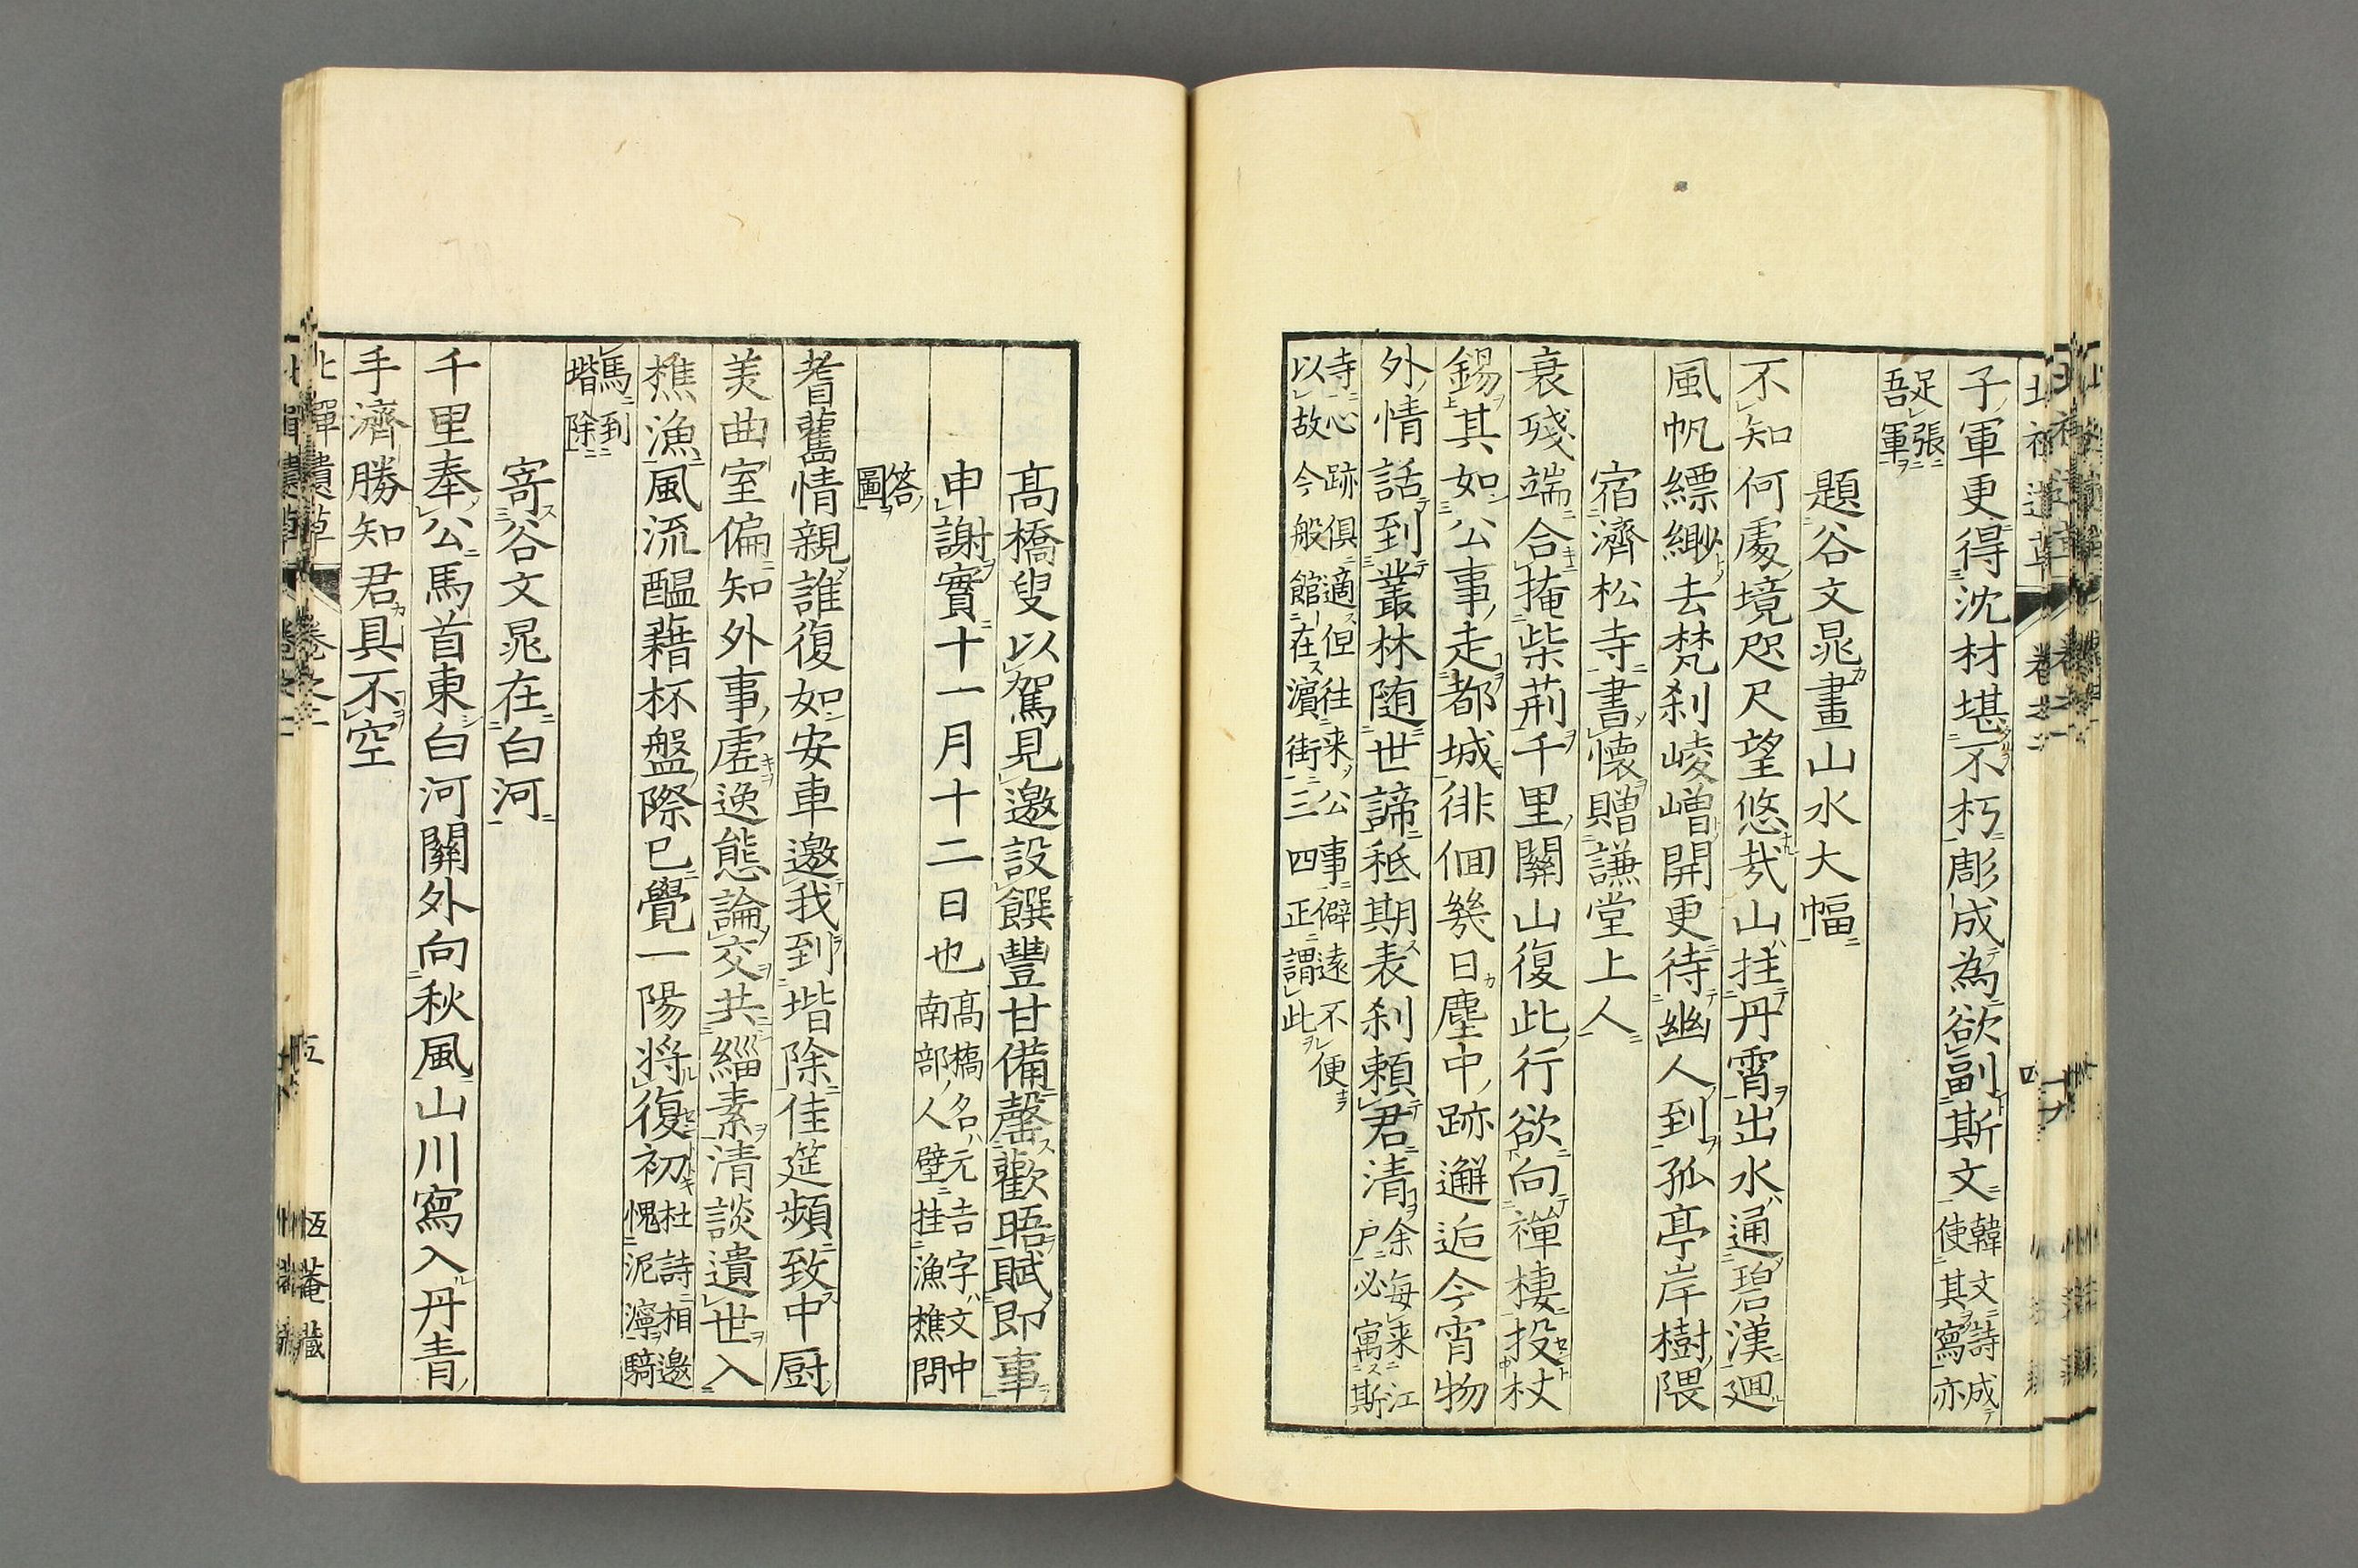 子軍更得沈材堪不朽彫成為欲副斯文韓文詩成使其寫亦
足張吾軍
題谷文晁畫山水大幅
不知何處境咫尺望悠哉山挂丹霄出水通碧漢廻
風帆縹緲去梵刹崚嶒開更待幽人到孤亭岸樹隈
宿濟松寺書懷贈謙堂上人
衰殘端合掩柴荊千里關山復此行欲向禪棲投杖
錫其如公事走都城徘佪幾日塵中跡邂逅今宵物
外情話到叢林随世諦秪期表刹頼君清余每来江戸必寓斯
寺心跡俱適但往来公事僻遠不便以故今般館在濵街三四正謂此
高橋叟以駕見邀設饌豐甘備罄歡晤賦即事
申謝實十一月十二日也高橋名元吉字文中南部人壁挂漁樵問
答圖
耆舊情親誰復如安車邀我到堦除佳筵頻致中厨
美曲室偏知外事虚逸態論交共緇素清談遺世入
樵漁風流醖藉杯盤際已覺一陽將復初杜詩相邀愧泥濘騎
馬到堦除
寄谷文晁在白河
千里奉公馬首東白河關外向秋風山川寫入丹青
手濟勝知君具不空